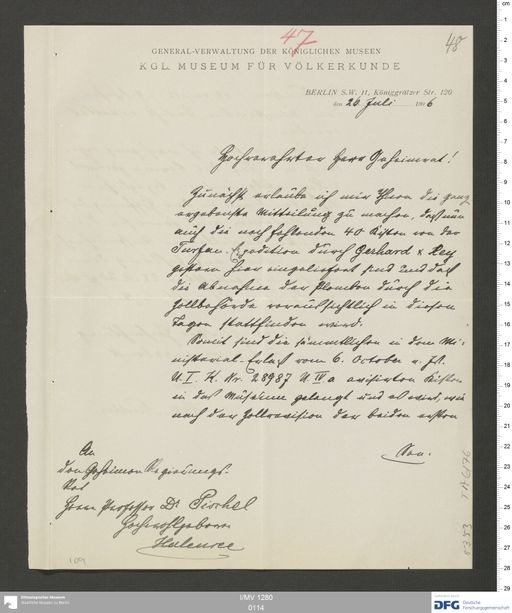 47
48
GENERAL-VERWALTUNG DER KÖNIGLICHEN MUSEEN
KGL. MUSEUM FÜR VÖLKERKUNDE
BERLIN S.W. 11, Königgrätzer Str. 120
den 26 Juli 1906
Hochverehrter Herr Geheimrat!
Zunächst erlaube ich mir Ihnen die ganz
ergebenste Mitteilung zu machen, daß nun
auch die noch fehlenden 40 Kisten von der
Turfan-Expedition durch Gerhard & Hey
gestern hier eingeliefert sind und daß
die Abnahme der Plomben durch die
Zollbehörde voraussichtlich in diesen
Tagen stattfinden wird.
Somit sind die sämmtlichen in dem Mi-
nisterial-Erlaß vom 6. October v. Js.
U I. K. Nr. 28987 U IV a avisirten Kisten
in das Museum gelangt und es wird, wie
nach der Zollrevision der beiden ersten
Sen.
An
den Geheimen Regierungs-
Rat
Herrn Professor Dr. Pischel
Hochwohlgeboren
Halensee
109
TA 6196
Ethnologisches Museum
Staatliche Museen zu Berlin
I/MV 1280
0114
DFG Deutsche
Forschungsgemeinschaft